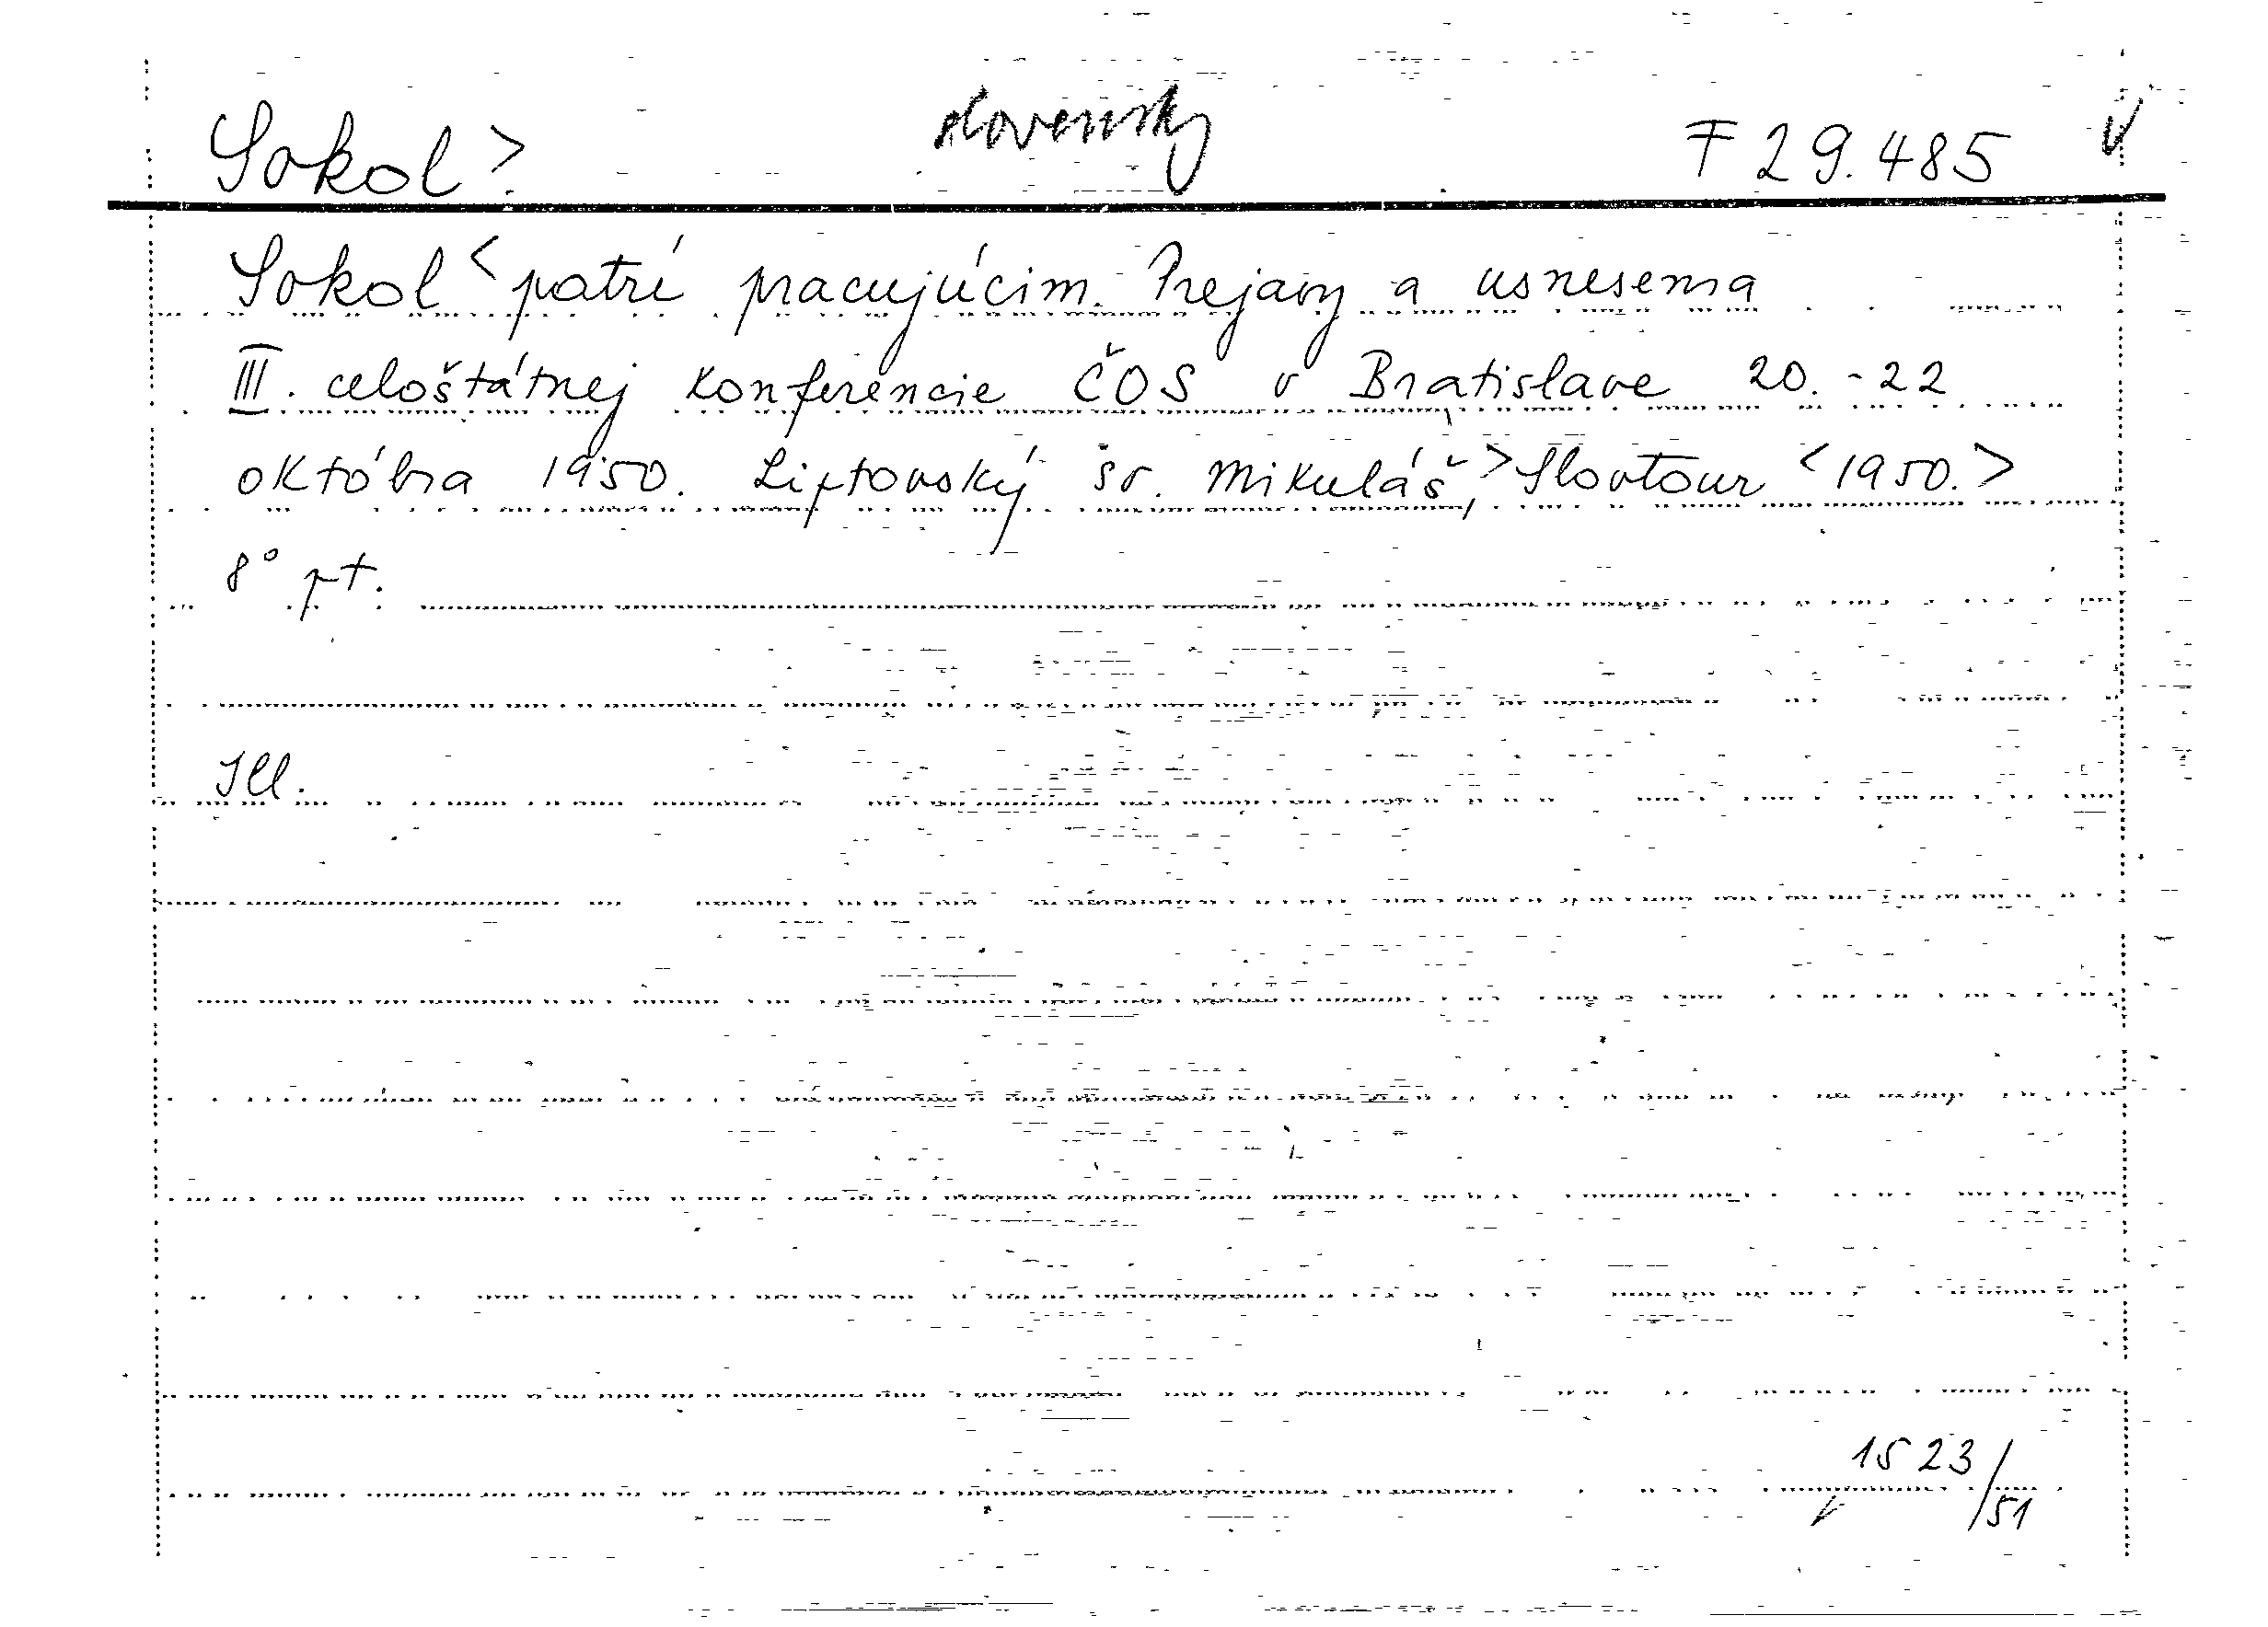 Sokol > slovensky F 29.485
Sokol < patrí pracujúcim. Prejavy a usnesenia
III. celoštátnej konferencie ČOS v Bratislave 20.-22
októbra 1950. Liptovský Sv. Mikuláš, > Slovtour < 1950. >
8° pt.
Ill.
1523/51